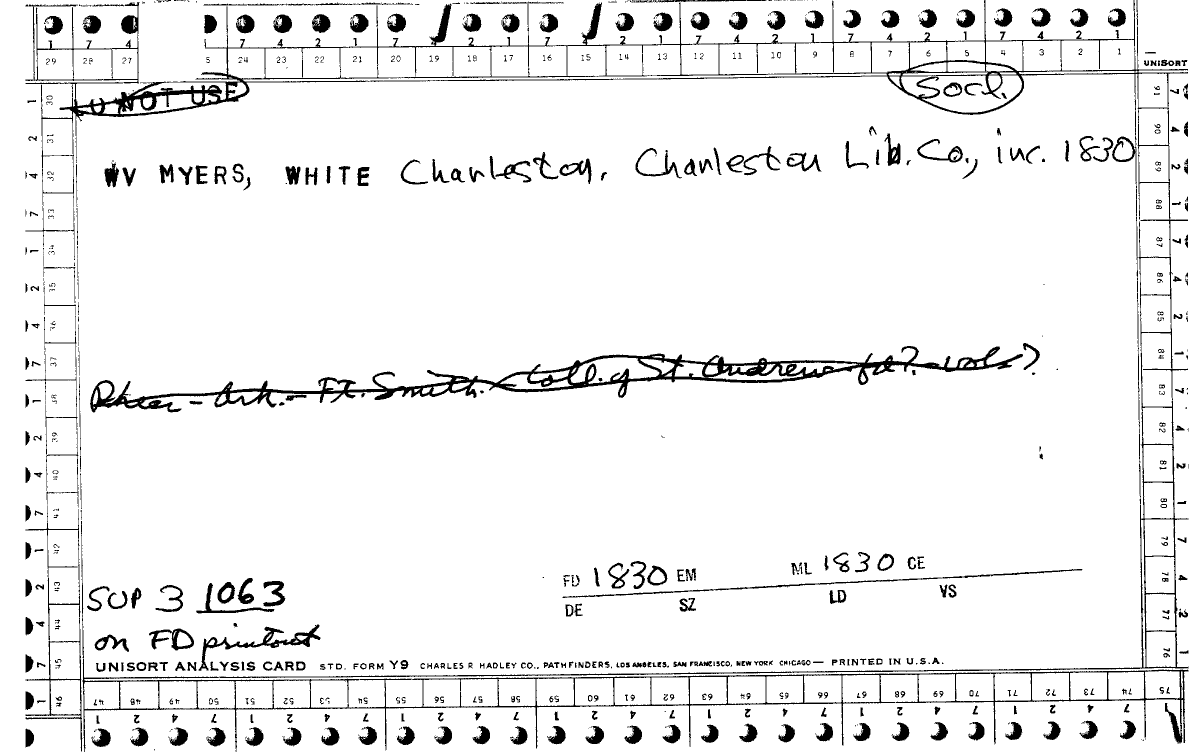 1 7 4 1 7 4 2 1 7 4 2 1 7 4 2 1 7 4 2 1 7 4 2 1 7 4 2 1
29 28 27 5 24 23 22 21 20 19 18 17 16 15 14 13 12 11 10 9 8 7 6 5 4 3 2 1
UNISORT
NOT USE
Socl.
WV MYERS, WHITE Charleston. Charleston Lib. Co., inc. 1830
Ark. - Ft. Smith. - Coll. of St. Andrew - fd? - vols?
FD 1830 EM ML 1830 CE
DE SZ LD VS
SUP 3 1063
on FD printout
UNISORT ANALYSIS CARD STD. FORM Y9 CHARLES R HADLEY CO., PATHFINDERS, LOS ANGELES, SAN FRANCISCO, NEW YORK CHICAGO — PRINTED IN U.S.A.
47 48 49 50 51 52 53 54 55 56 57 58 59 60 61 62 63 64 65 66 67 68 69 70 71 72 73 74 75
1 2 4 7 1 2 4 7 1 2 4 7 1 2 4 7 1 2 4 7 1 2 4 7 1 2 4 7 1